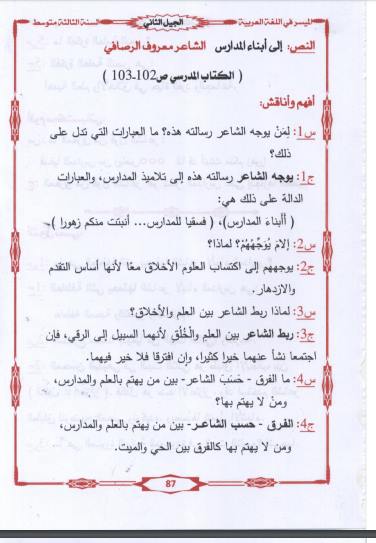 الميسر في اللغة العربية الجيل الثاني السنة الثالثة متوسط
النص: إلى أبناء المدارس الشاعر معروف الرصافي
( الكتاب المدرسي ص102-103 )
أفهم وأناقش:
س1: لِمَنْ يوجه الشاعر رسالته هذه؟ ما العبارات التي تدل على
ذلك؟
ج1: يوجه الشاعر رسالته هذه إلى تلاميذ المدارس، والعبارات
الدالة على ذلك هي:
( أأبناءَ المدارس)، ( فسقيا للمدارس... أنبتت منكم زهورا )-
س2: إلامَ يُوَجِّهُهُمْ؟ لماذا؟
ج2: يوجههم إلى اكتساب العلوم الأخلاق معًا لأنها أساس التقدم
والازدهار.
س3: لماذا ربط الشاعر بين العلم والأخلاق؟
ج3: ربط الشاعر بين العلم والْخُلُقِ لأنهما السبيل إلى الرقي، فإن
اجتمعا نشأ عنهما خيرا كثيرا، وإن افترقا فلا خير فيهما.
س4: ما الفرق - حَسَبَ الشاعر- بين من يهتم بالعلم والمدارس،
ومنْ لا يهتم بها؟
ج4: الفرق - حسب الشاعر- بين من يهتم بالعلم والمدارس،
ومن لا يهتم بها كالفرق بين الحي والميت.
87